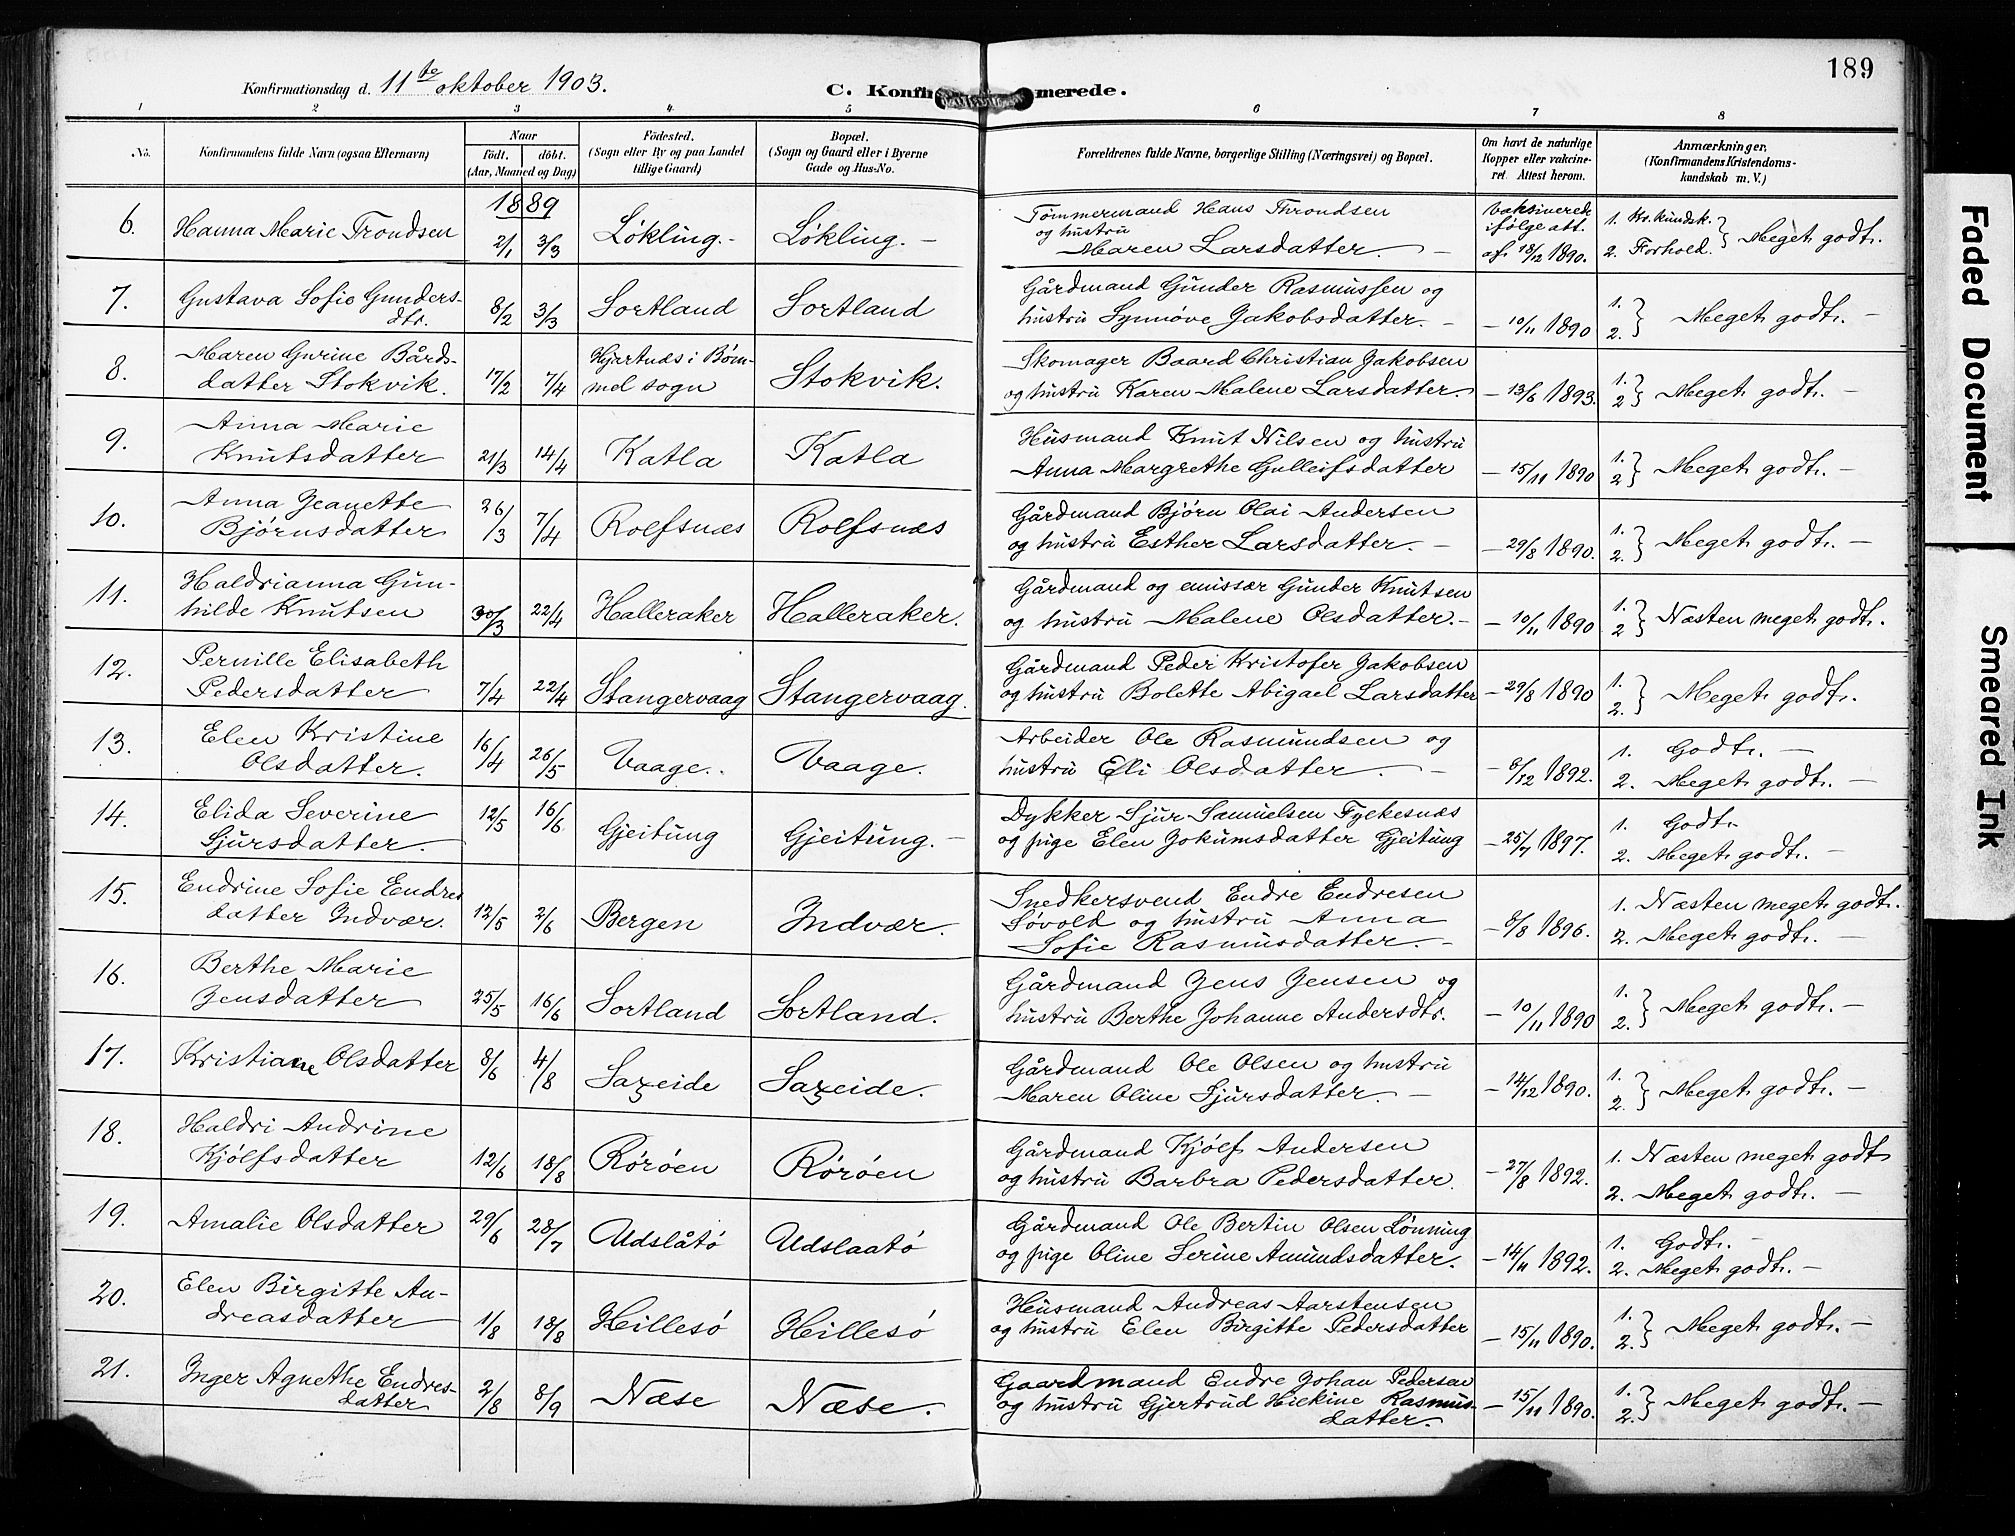 189
Konfirmationsdag d. 11te oktober 1903.
C. Konfirmerede.
1 2 3 4. 5 6 7 8
No. Konfirmandens fulde Navn (ogsaa Efternavn) Naar født. døbt. (Aar, Maaned og Dag) Fødested. (Sogn eller By og paa Landet tillige Gaard) Bopæl. (Sogn og Gaard eller i Byerne Gade og Hus-No. Forældrenes fulde Navne, borgerlige Stilling (Næringsvei) og Bopæl. Om havt de naturlige Kopper eller vakcineret. Attest herom. Anmærkninger. (Konfirmandens Kristendomskundskab m. V.)
1889
6. Hanna Marie Trondsen 2/1 3/3 Løkling.- Løkling. - Tømmermand Hans Throndsen
og hustru
Maren Larsdatter. - vaksinerede ifølge att. af 18/12 1890. 1. Kr. kundsk. 2. Forhold. } Meget godt.
7. Gustava Sofie Gunders-
dtr. 8/2 3/3 Sortland Sortland Gårdmand Gunder Rasmussen og
hustru Synnøve Jakobsdatter. - - 10/11 1890 1. 2. } Meget godt. -
8. Maren Gurine Bårds-
datter Stokvik. 17/2 7/4 Hjartnæs i Bøm-
mel sogn Stokvik. Skomager Baard Christian Jakobsen
og hustru Karen Malene Larsdatter. - 13/6 1893. 1. 2 } Meget godt. -
9. Anna Marie
Knutsdatter 21/3 14/4 Katla Katla Husmand Knut Nilsen og hustru
Anna Margrethe Gulleifsdatter - 15/11 1890 1. 2 } Meget godt. -
10. Anna Jeanette
Bjørnsdatter 26/3 7/4 Rolfsnæs Rolfsnæs Gårdmand Bjørn Olai Andersen
og hustru Esther Larsdatter. - - 29/8 1890. 1. 2. } Meget godt. -
11. Haldrianna Gun-
hilde Knutsen 30/3 22/4 Halleraker Halleraker. Gårdmand og emissær Gunder Knutsen
og hustru Malene Olsdatter. - - 10/11 1890 1. 2 } Næsten meget godt.
12. Pernille Elisabeth
Pedersdatter 7/4 22/4 Stangervaag Stangervaag. Gårdmand Peder Kristofer Jakobsen
og hustru Bolette Abigael Larsdatter - 29/8 1890 1. 2. } Meget godt.
13. Elen Kristine
Olsdatter. 16/4 26/5 Vaage. Vaage. Arbeider Ole Rasmundsen og
hustru Eli Olsdatter. - - 8/12 1892. 1. Godt. -
2. Meget godt. -
14. Elida Severine
Sjursdatter. 12/5 16/6 Gjeitung Gjeitung. - Dykker Sjur Samuelsen Fylkesnæs
og pige Elen Jokumsdatter Gjeitung - 25/7 1897. 1. Godt.
2. Meget godt. -
15. Endrine Sofie Endres
datter Indvær. 12/5 2/6 Bergen Indvær. Snedkersvend Endre Endresen
Søvold og hustru Anna
Sofie Rasmusdatter. - - 8/8 1896. 1. Næsten meget godt.
2. Meget godt. -
16. Berthe Marie
Jensdatter 25/5 16/6 Sortland Sortland. Gårdmand Jens Jensen og
hustru Berthe Johanne Andersdtr. - 10/11 1890 1. 2. } Meget godt. -
17. Kristiane Olsdatter 8/6 4/8 Sazeide Sazeide. Gårdmand Ole Olsen og hustru
Maren Oline Sjursdatter. - - 14/12 1890. 1. 2. } Meget godt. -
18. Haldri Andrine
Kjølfsdatter 12/6 18/8 Rørøen Rørøen Gårdmand Kjølf Andersen
og hustru Barbra Pedersdatter. - 27/8 1892. 1. Næsten meget godt
2. Meget godt. -
19. Amalie Olsdatter 29/6 28/7 Udslåtø Udslaatø Gårdmand Ole Bertin Olsen Lønning
og pige Oline Serine Amundsdatter. - 14/11 1892. 1. Godt. -
2. Meget godt. -
20. Elen Birgitte An-
dreasdatter 1/8 18/8 Hillesø Hillesø Husmand Andreas Aarstensen
og hustru Elen Birgitte Pedersdatter - 15/11 1890. 1. 2. } Meget godt. -
21. Inger Agnethe Endres-
datter 2/8 8/9 Næse Næse. Gaardmand Endre Johan Pedersen
og hustru Gjertrud Hickine Rasmus-
datter. - 15/11 1890. 1. 2. } Meget godt. -
Faded Document
Smeared Ink